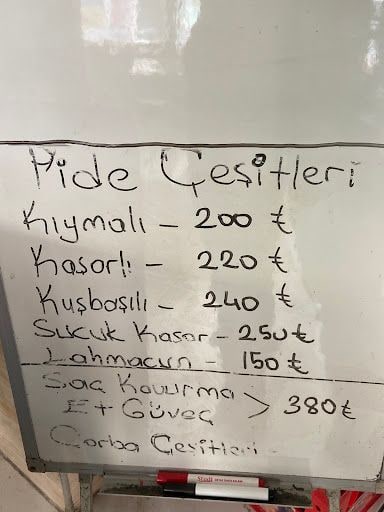 Pide Çeşitleri
Kıymalı - 200 ₺
Kaşarlı - 220 ₺
Kuşbaşılı - 240 ₺
Sucuk Kaşar - 250 ₺
Lahmacun 150 ₺
Saç Kavurma
Et Güveç > 380 ₺
Çorba Çeşitleri